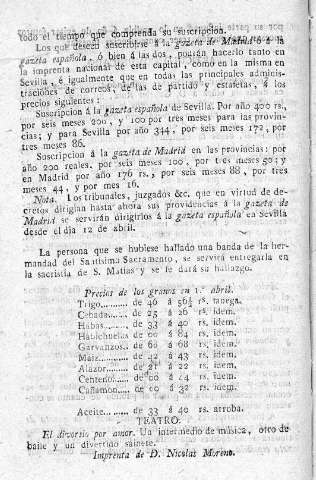 todo el tiempo que comprenda su suscripcion.
Los que deseen suscribirse á la gazeta de Madrid ó á la
gazeta española, ó bien á las dos, podrán hacerlo tanto en
la imprenta nacional de esta capital, como en la misma en
Sevilla, é igualmente que en todas las principales adminis-
traciones de correos, de las de partido y estafetas, á los
precios siguientes:
Suscripcion á la gazeta española de Sevilla. Por año 400 rs.,
por seis meses 200, y 100 por tres meses para las provin-
cias; y para Sevilla por año 344, por seis meses 172, por
tres meses 86.
Suscripcion á la gazeta de Madrid en las provincias: por
año 200 reales, por seis meses 100, por tres meses 50; y
en Madrid por año 176 rs., por seis meses 88, por tres
meses 44, y por mes 16.
Nota. Los tribunales, juzgados &c. que en virtud de de-
cretos dirigian hasta ahora sus providencias á la gazeta de
Madrid se servirán dirigirlos á la gazeta española en Sevilla
desde el dia 12 de abril.
La persona que se hubiese hallado una banda de la her-
mandad del Santísimo Sacramento, se servirá entregarla en
la sacristía de S. Matias y se le dará su hallazgo.
Precios de los granos en 1.º abril.
Trigo.......... de 46 á 56½ rs. fanega.
Cebada....... de 25 á 26 rs. idem.
Habas......... de 33 á 40 rs. idem.
Habichuelas de 00 á 84 rs. idem.
Garvanzos.. de 60 á 68 rs. idem.
Maiz........... de 42 á 43 rs. idem.
Alazor........ de 21 á 22 rs. idem.
Centeno...... de 00 á 24 rs. idem.
Cañamon.... de 00 á 32 rs. idem.
Aceite......... de 33 á 40 rs. arroba.
TEATRO.
El divorcio por amor. Un intermedio de música, otro de
baile y un divertido sainete.
Imprenta de D. Nicolas Moreno.